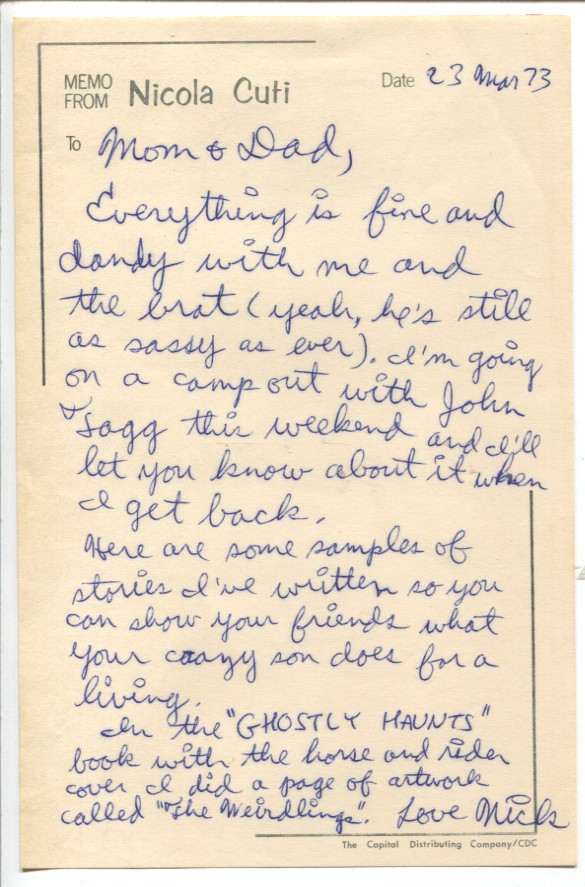 MEMO FROM Nicola Cuti
Date 23 Mar 73
To Mom & Dad,
Everything is fine and
dandy with me and
the brat (yeah, he's still
as sassy as ever). I'm going
on a camp out with John
& Sagg this weekend and I'll
let you know about it when
I get back.
Here are some samples of
stories I've written so you
can show your friends what
your crazy son does for a
living.
In the "GHOSTLY HAUNTS"
book with the horse and rider
cover I did a page of artwork
called "The Weirdlings". Love Nick
The Capital Distributing Company/CDC